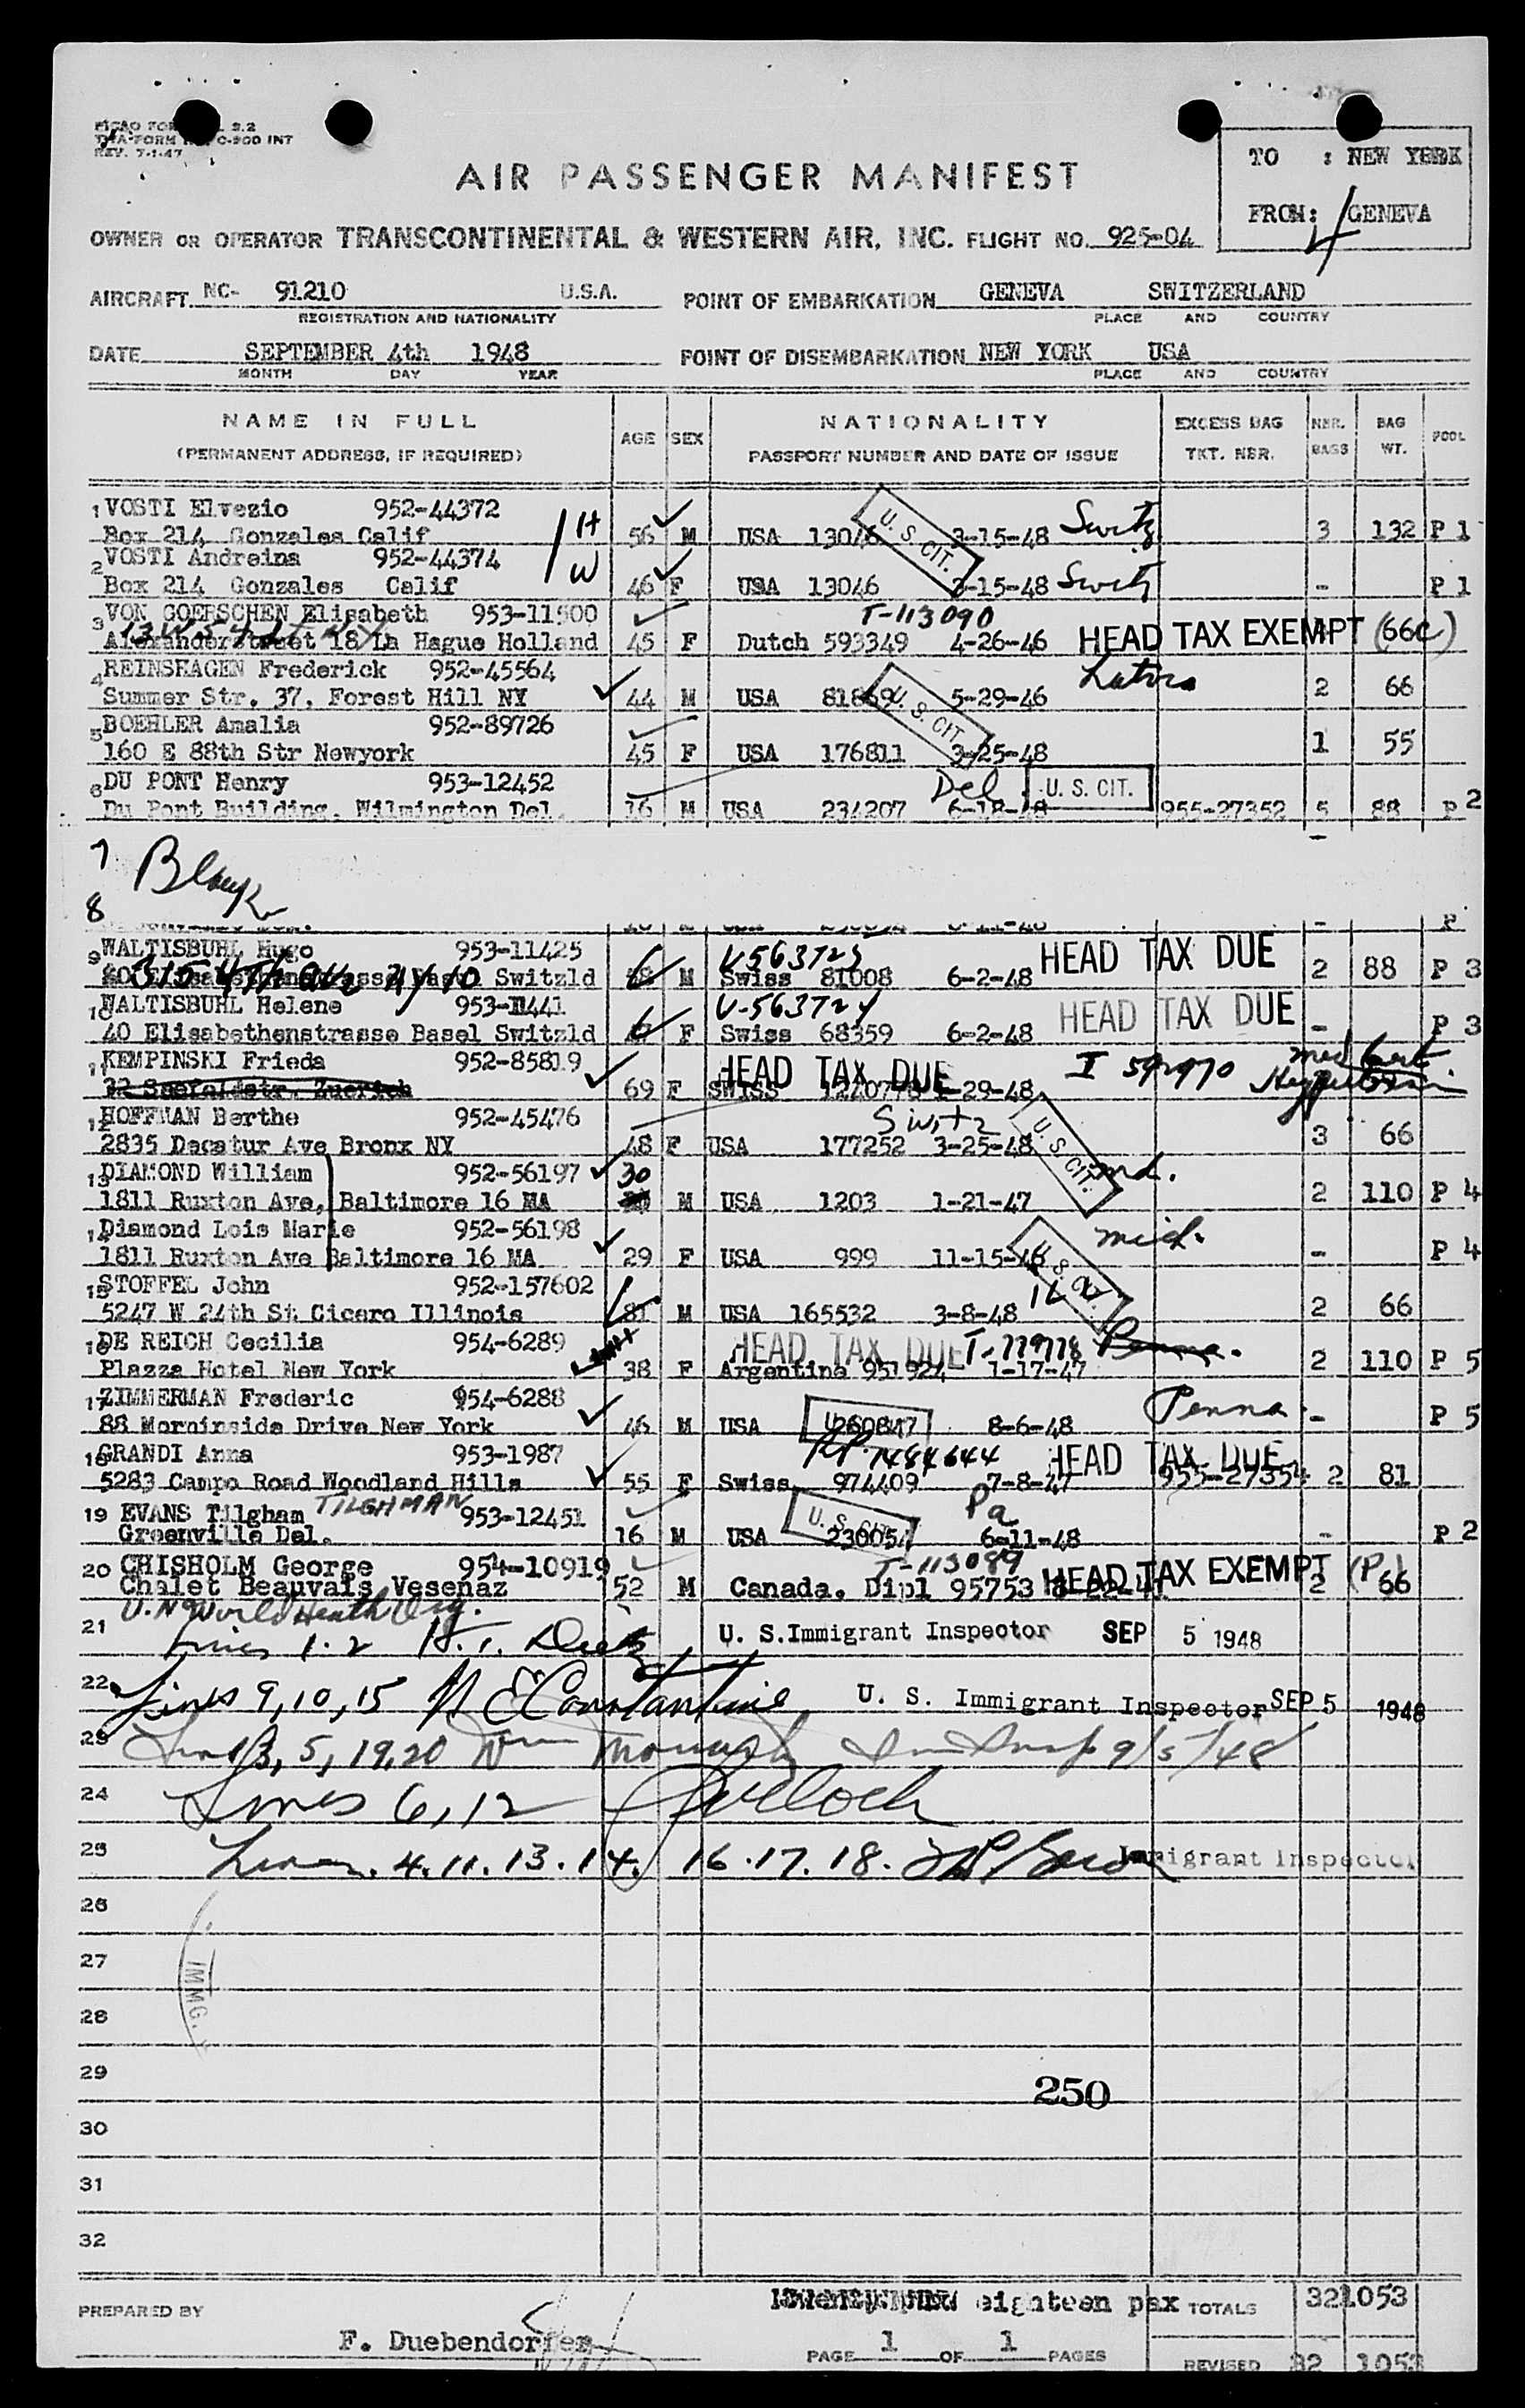 REV. 7-1-47
TO : NEW YORK
FROM: GENEVA
4
AIR PASSENGER MANIFEST
OWNER OR OPERATOR TRANSCONTINENTAL & WESTERN AIR, INC. FLIGHT NO. 925-04
AIRCRAFT NC- 91210 U.S.A. POINT OF EMBARKATION GENEVA SWITZERLAND
REGISTRATION AND NATIONALITY PLACE AND COUNTRY
DATE SEPTEMBER 4th 1948 POINT OF DISEMBARKATION NEW YORK USA
MONTH DAY YEAR PLACE AND COUNTRY
NAME IN FULL AGE SEX NATIONALITY EXCESS BAG NBR. BAG POOL
(PERMANENT ADDRESS, IF REQUIRED) PASSPORT NUMBER AND DATE OF ISSUE TKT. NBR. BAGS WT.
1 VOSTI Elvezio 952-44372
Box 214 Gonzales Calif H 56 M USA 13046 U. S. CIT. 3-15-48 Switz 3 132 P 1
2 VOSTI Andreina 952-44374
Box 214 Gonzales Calif W 46 F USA 13046 3-15-48 Switz - P 1
3 VON GOERSCHEN Elisabeth 953-11500 T-113090
Alexanderstreet 18 La Hague Holland 45 F Dutch 593349 4-26-46 HEAD TAX EXEMPT (66c)
4 REINSHAGEN Frederick 952-45564 Latvia
Summer Str. 37. Forest Hill NY 44 M USA 81869 U. S. CIT. 5-29-46 2 66
5 BOEHLER Amalia 952-89726
160 E 88th Str Newyork 45 F USA 176811 3-25-48 1 55
6 DU PONT Henry 953-12452 Del U. S. CIT.
Du Pont Building. Wilmington Del. 16 M USA 234207 6-18-48 955-27352 5 88 P 2
7 Blank
8
9 WALTISBUHL Hugo 953-11425 V-563723 HEAD TAX DUE
315 4th ave NY 10 Switzld M Swiss 81008 6-2-48 2 88 P 3
10 WALTISBUHL Helene 953-11441 V-563724 HEAD TAX DUE
40 Elisabethenstrasse Basel Switzld F Swiss 68359 6-2-48 - P 3
11 KEMPINSKI Frieda 952-85819 HEAD TAX DUE I 592970 med Cert
69 F SWISS -29-48
12 HOFFMAN Berthe 952-45476 Switz
2835 Decatur Ave Bronx NY 48 F USA 177252 3-25-48 U. S. CIT. 3 66
13 DIAMOND William 952-56197 30 md.
1811 Ruxton Ave, Baltimore 16 MA M USA 1203 1-21-47 2 110 P 4
14 Diamond Lois Marie 952-56198 mich.
1811 Ruxton Ave Baltimore 16 MA 29 F USA 999 11-15-46 U. S. CIT. - P 4
15 STOFFEL John 952-157602
5247 W 24th St Cicero Illinois M USA 165532 3-8-48 2 66
16 DE REICH Cecilia 954-6289 HEAD TAX DUE T-779778 Penna.
Plazza Hotel New York 38 F Argentine 951924 1-17-47 2 110 P 5
17 ZIMMERMAN Frederic 954-6288 Penna.
88 Morninside Drive New York 46 M USA 260847 8-6-48 - P 5
18 GRANDI Anna 953-1987 RP. 7484644 HEAD TAX DUE
5283 Campo Road Woodland Hills 55 F Swiss 974409 7-8-47 955-27354 2 81
19 EVANS Tilgham TILGHMAN 953-12451 U. S. CIT. Pa
Greenville Del. 16 M USA 230054 6-11-48 - P 2
20 CHISHOLM George 954-10919 T-113089
Chalet Beauvais Vesenaz 52 M Canada, Dipl 95753 HEAD TAX EXEMPT 2 66
U.N World Heath Org.
21 Lines 1-2 U. S. Immigrant Inspector SEP 5 1948
22 Lines 9, 10, 15 N E Constantine U. S. Immigrant Inspector SEP 5 1948
23 Lines 3, 5, 19, 20 9/5/48
24 Lines 6, 12
25 Lines. 4. 11. 13. 14. 16. 17. 18. Immigrant Inspector
26
27 IMMG.
28
29
250
30
31
32
PREPARED BY eighteen pax TOTALS 32 1053
F. Duebendorfer
PAGE 1 OF 1 PAGES
REVISED 32 1053